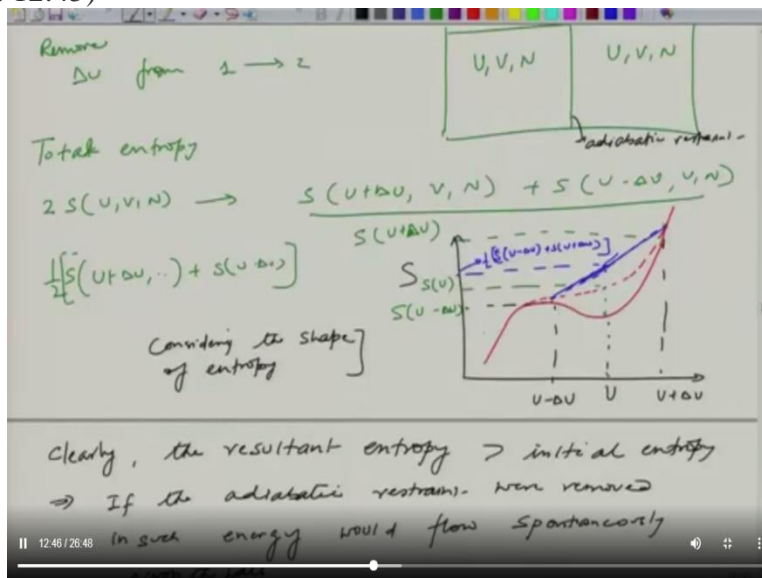 12.43)
Remove
ΔU from 1 → 2
U, V, N
U, V, N
adiabatic restrain-
Total entropy
2 S(U,V,N) → S(U+ΔU, V, N) + S(U-ΔU, V, N)
½[S(U+ΔU, ..) + S(U-ΔU)]
S(U+ΔU)
½[S(U-ΔU)+S(U+ΔU)]
S
S(U)
S(U-ΔU)
Considering the shape
of entropy
U-ΔU U U+ΔU
Clearly, the resultant entropy > initial entropy
⇒ If the adiabatic restrain- were removed
in such energy would flow spontaneously
12:46 / 26:48